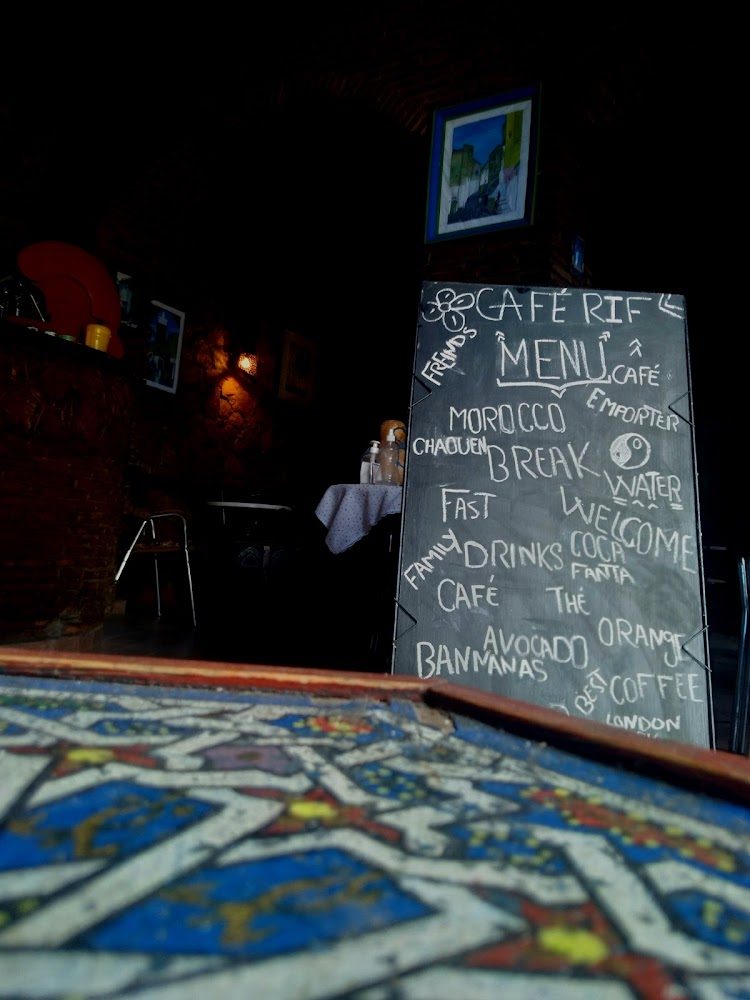 CAFÉ RIF
FREINDS
MENU
CAFÉ
EMPORTER
MOROCCO
CHAOUEN
BREAK
WATER
FAST
WELCOME
FAMILY
DRINKS
COCA
FANTA
CAFÉ
THÉ
AVOCADO
ORANGE
BANMANAS
BEST
COFFEE
LONDON